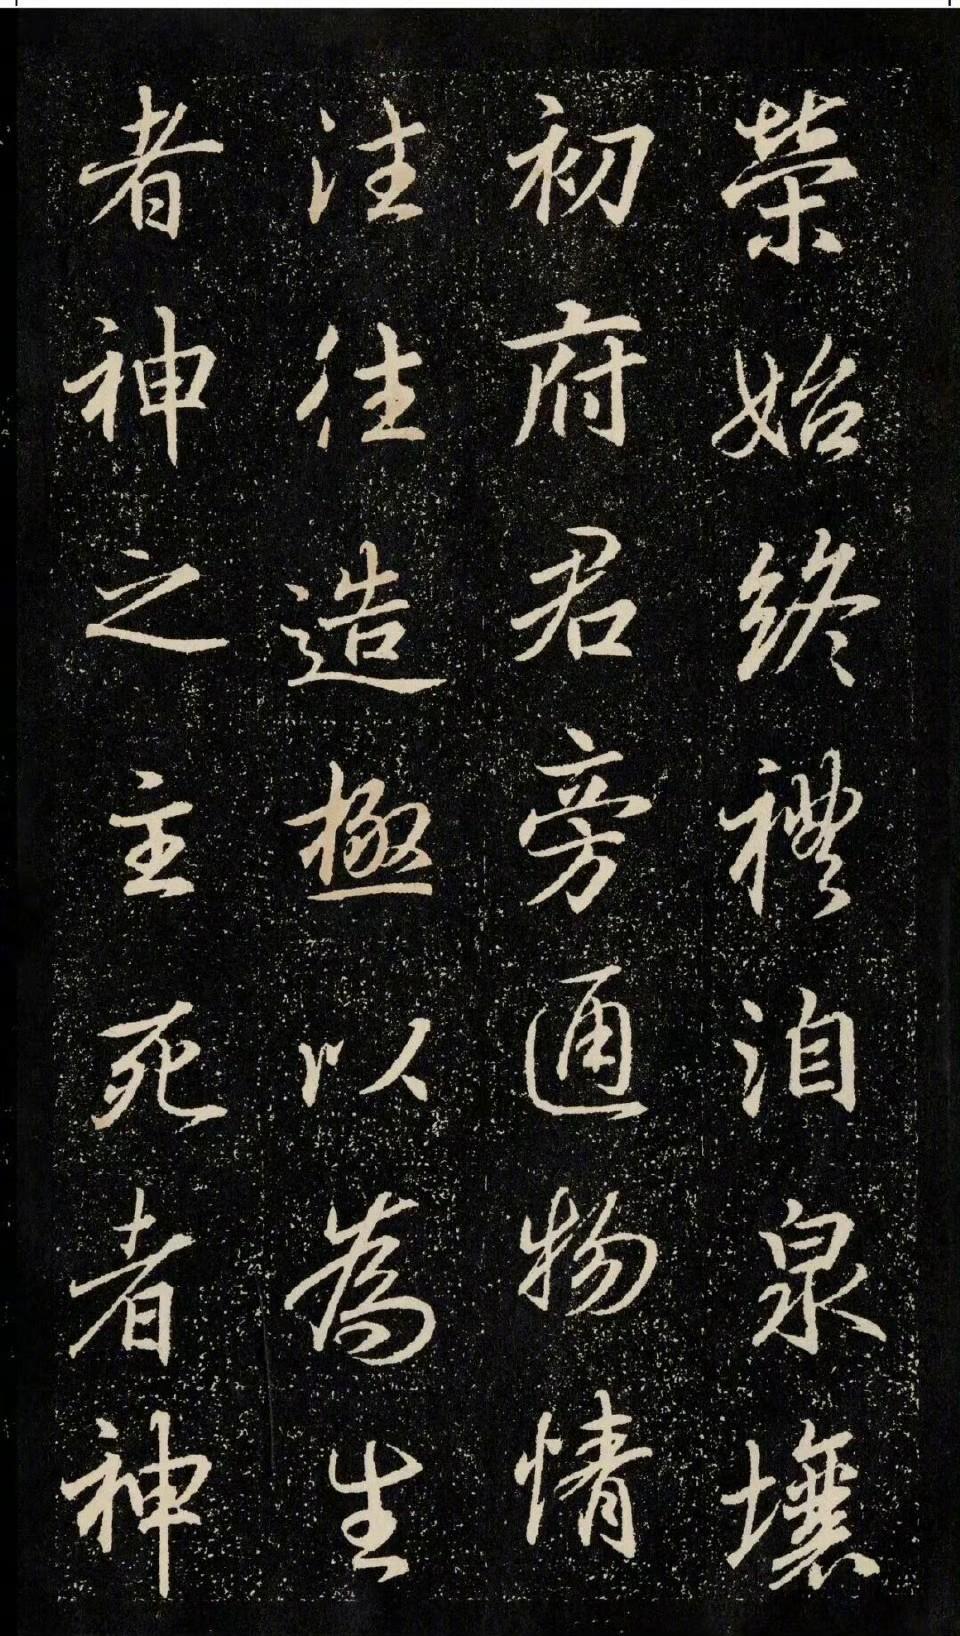 榮始終禮洎泉壤
初府君旁通物情
往往造極以為生
者神之主死者神